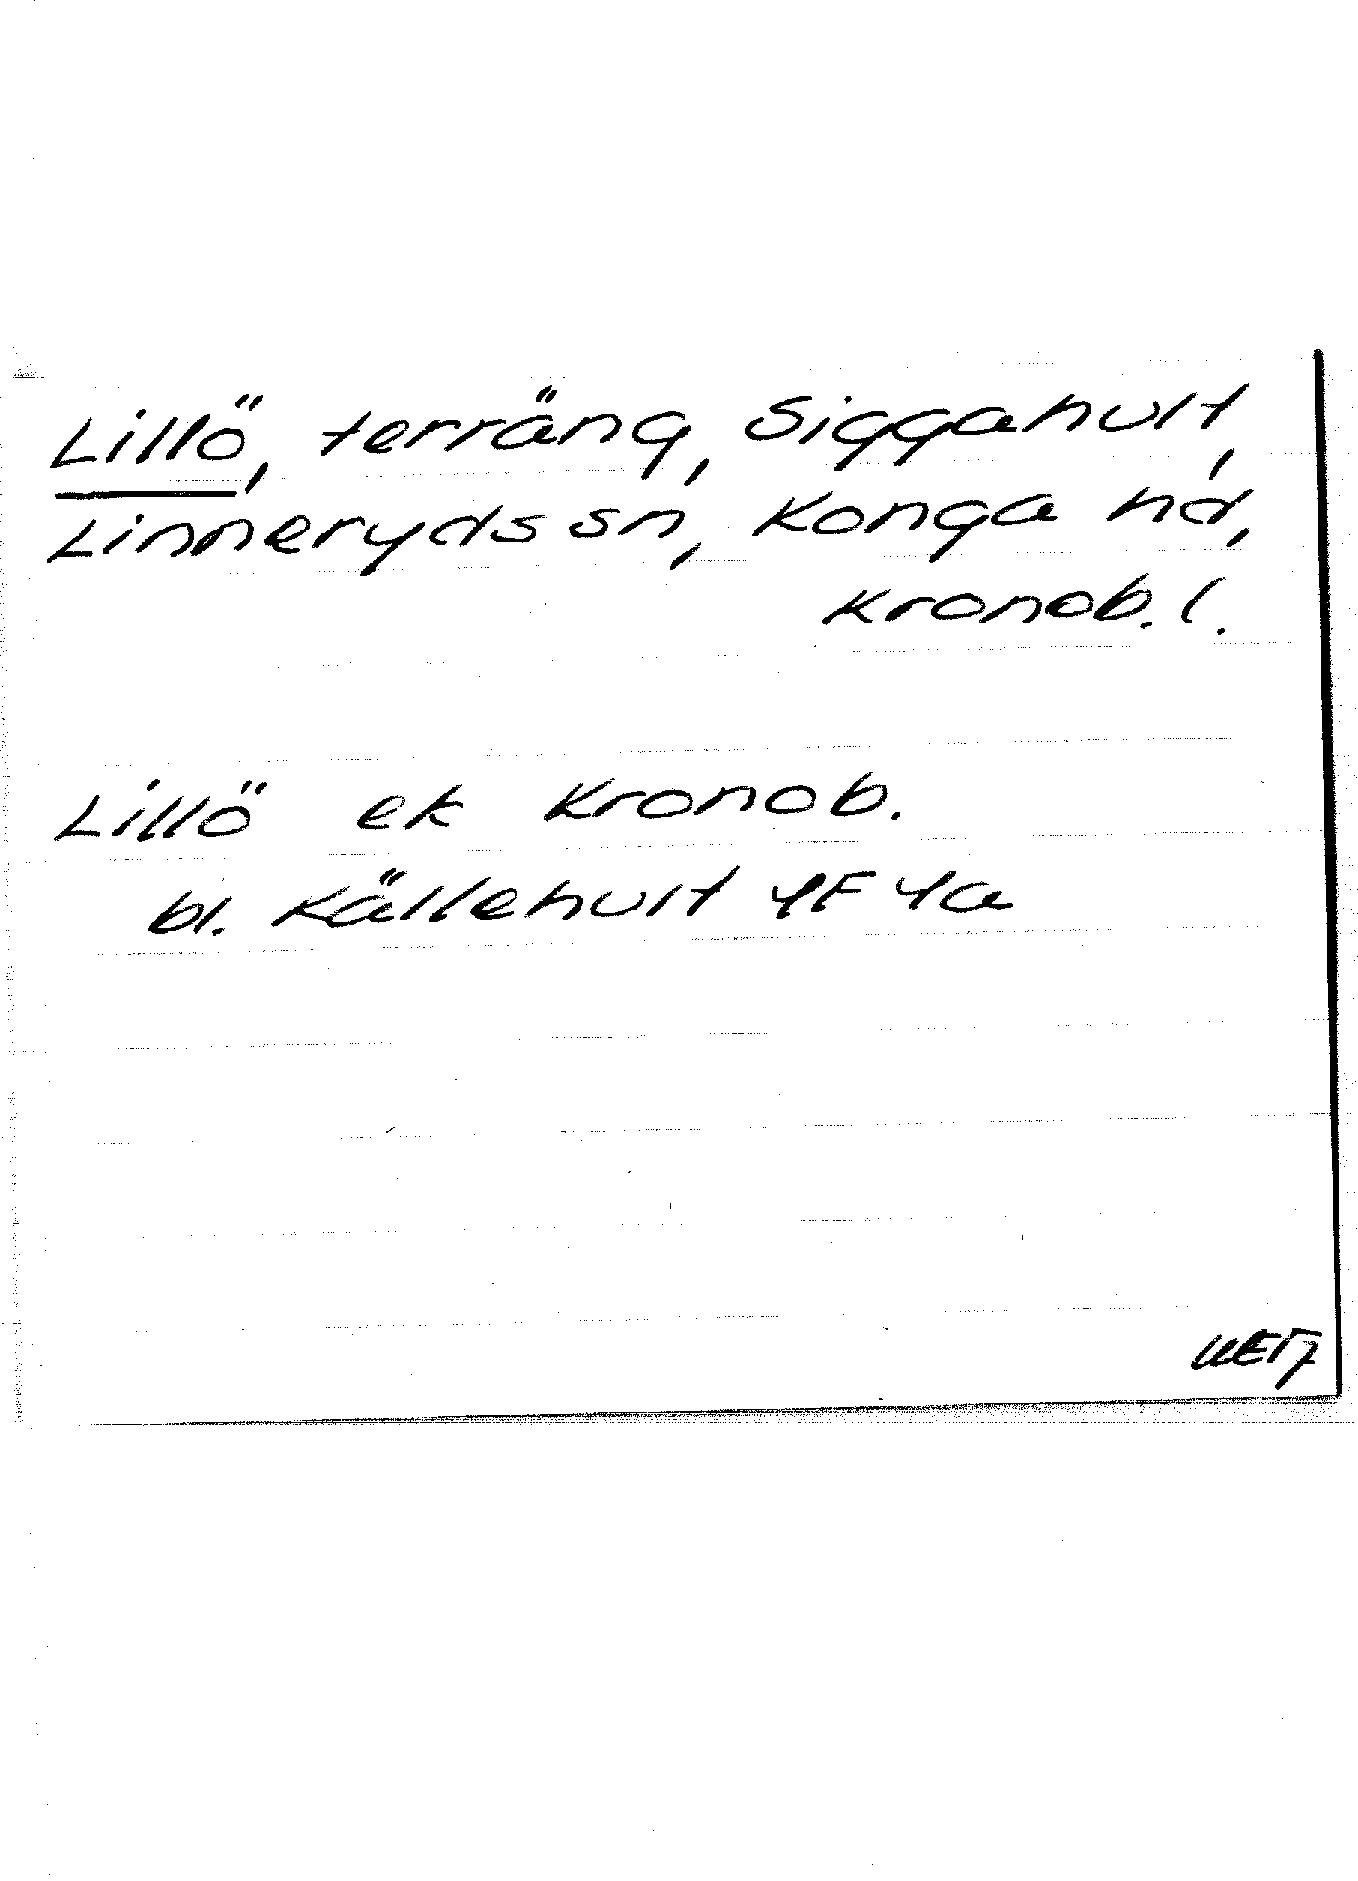 Lillö, terräng, Siggahult,
Linneryds sn, Konga hd,
Kronob. l.
Lillö ek Kronob.
bl. Källehult 4F 4a